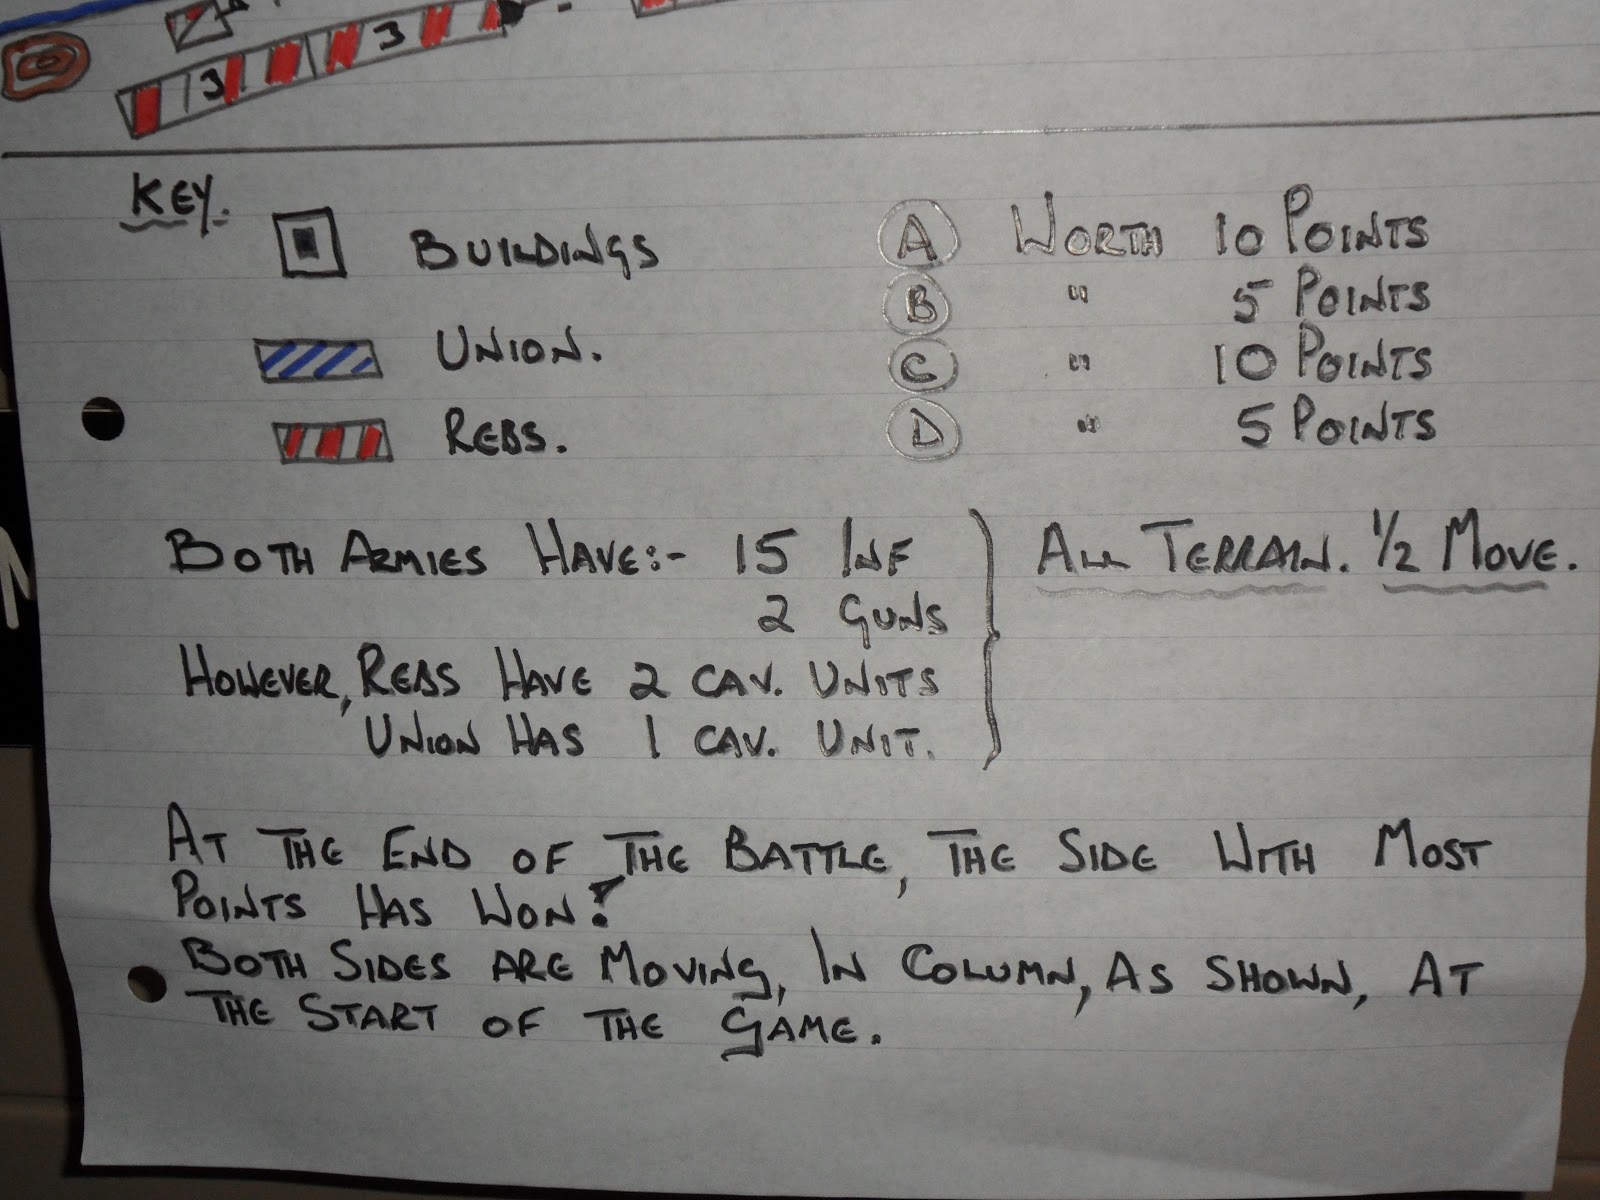 3
3
KEY.
BUILDINGS
A WORTH 10 POINTS
B " 5 POINTS
UNION.
C " 10 POINTS
REBS.
D " 5 POINTS
BOTH ARMIES HAVE:- 15 INF
ALL TERRAIN. 1/2 MOVE.
2 GUNS
HOWEVER, REBS HAVE 2 CAV. UNITS
UNION HAS 1 CAV. UNIT.
AT THE END OF THE BATTLE, THE SIDE WITH MOST
POINTS HAS WON!
BOTH SIDES ARE MOVING, IN COLUMN, AS SHOWN, AT
THE START OF THE GAME.